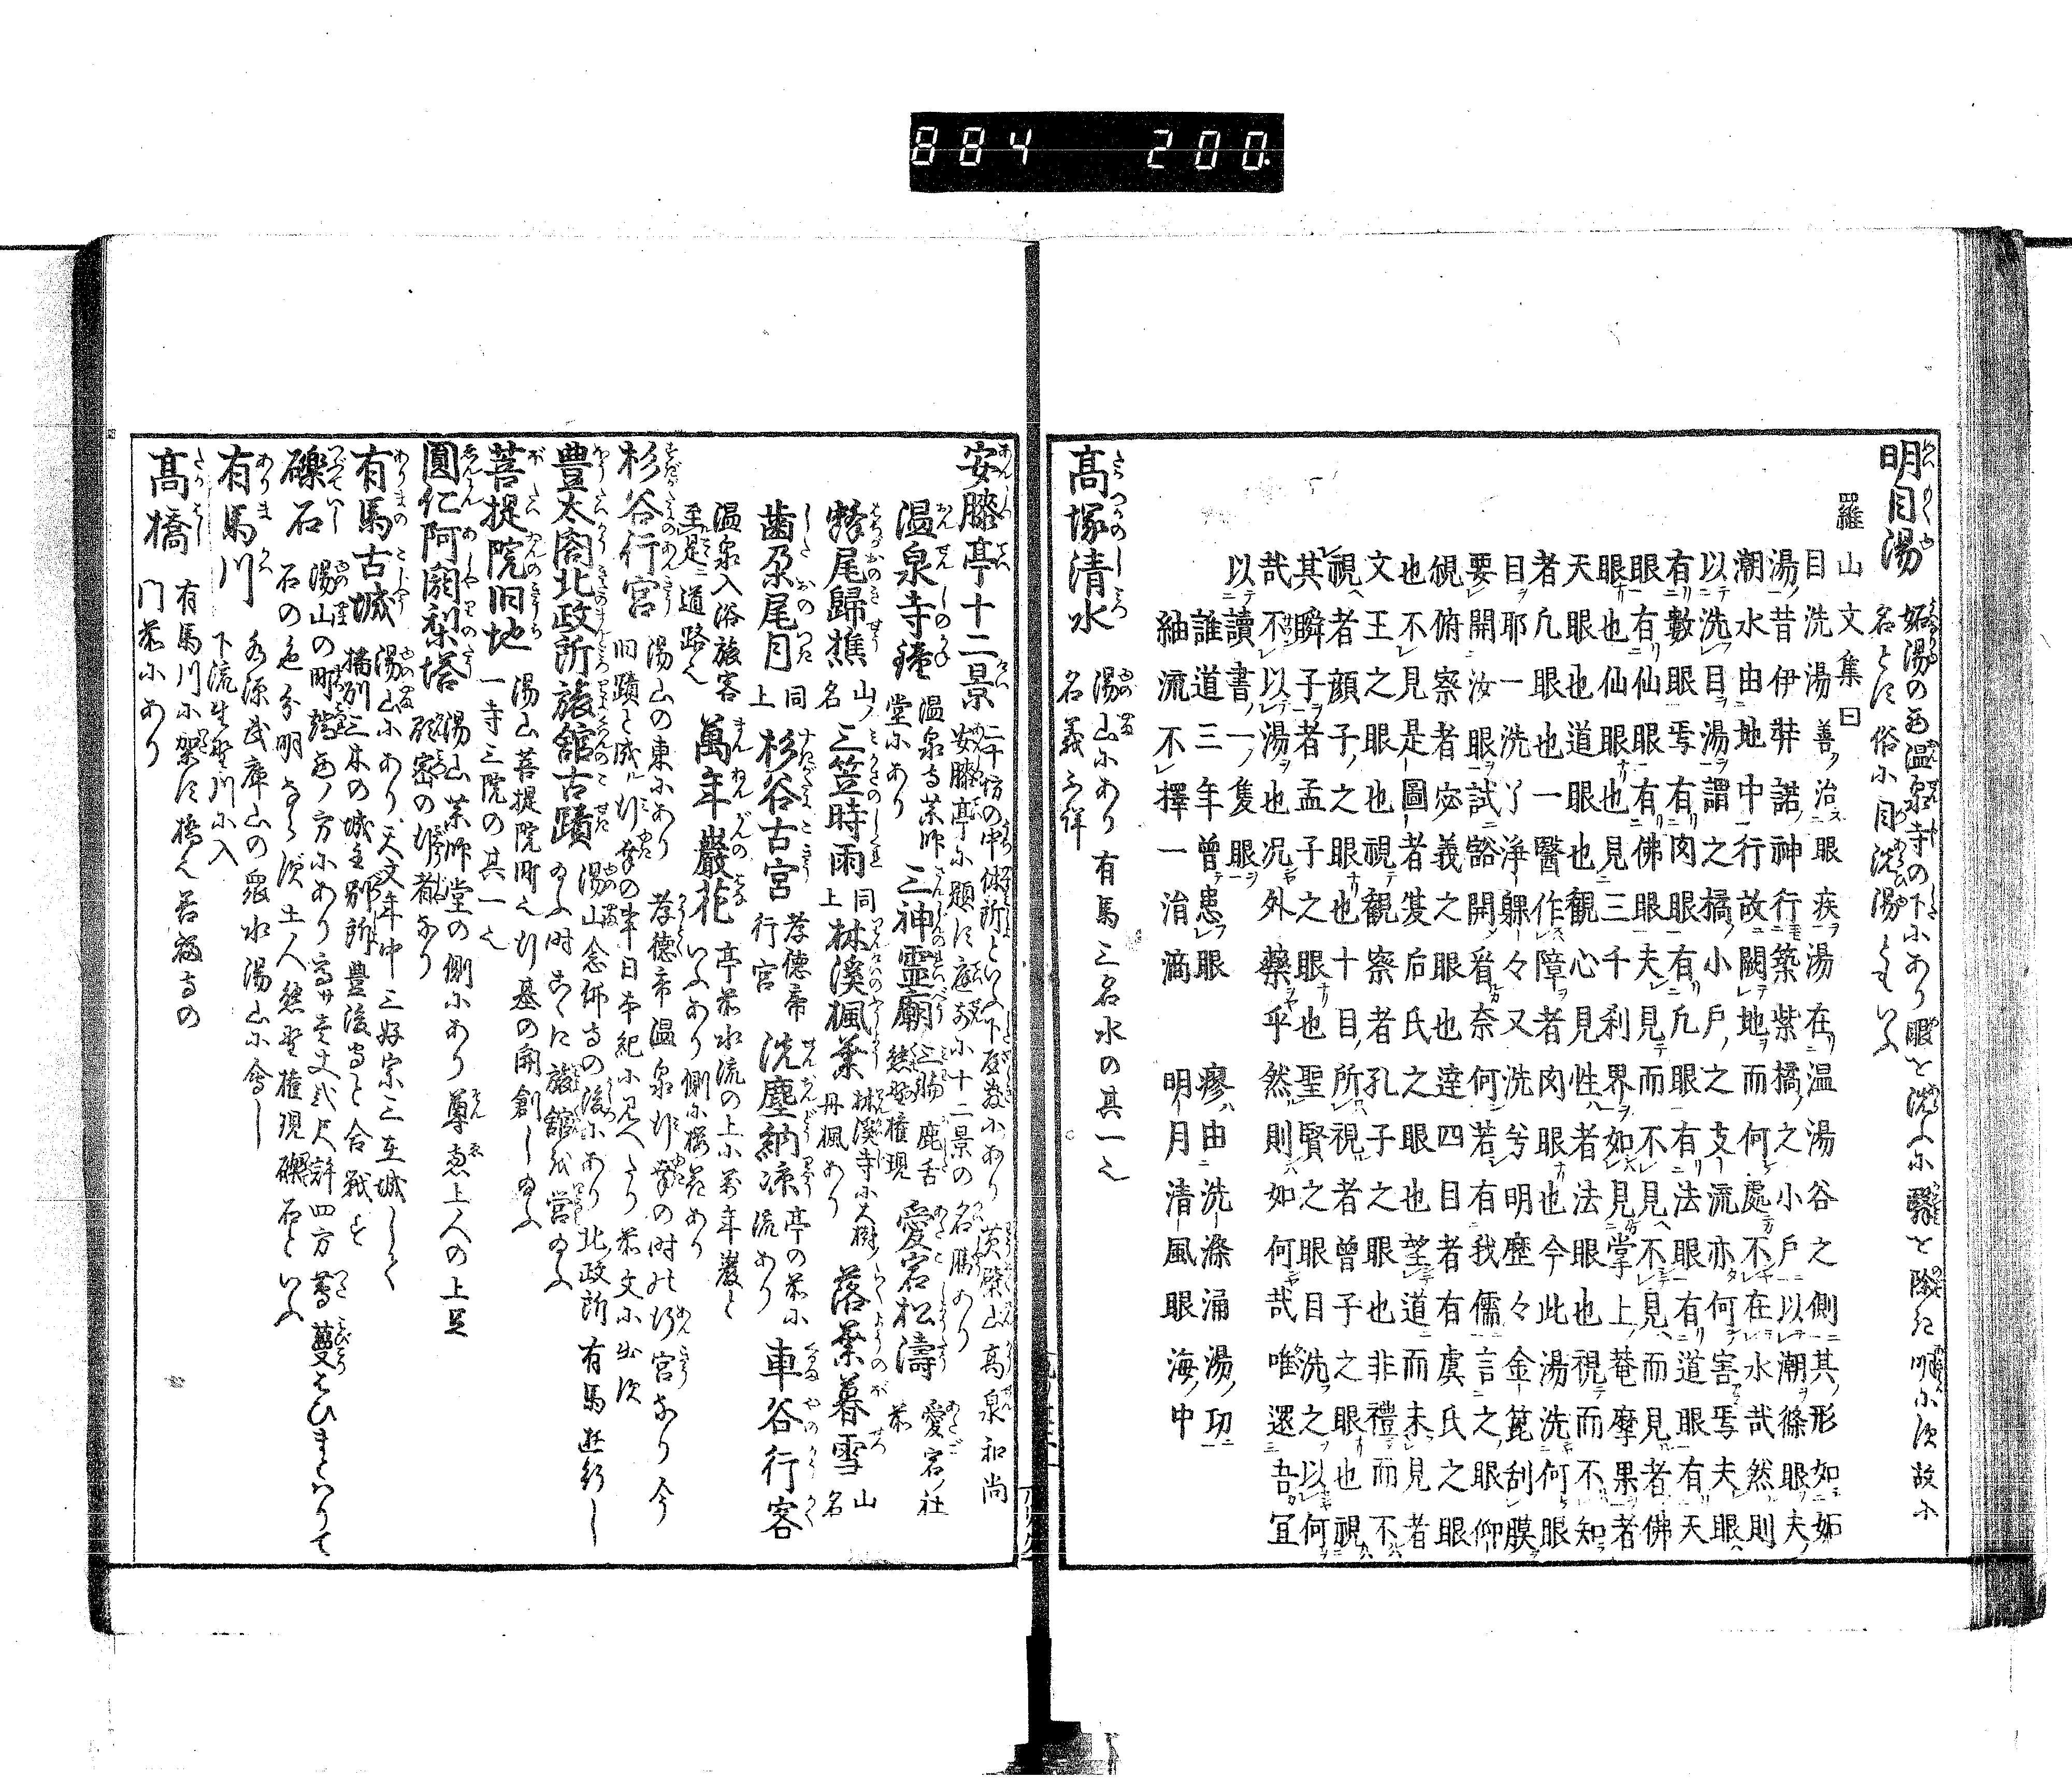 884 200
明目湯 妬湯の西温泉寺の下にあり眼を洗ふに翳を除紅順に須故に
名とす俗に目洗湯ともいふ
羅山文集曰
目洗湯善治眼疾湯在温湯谷之側其形如妬
湯昔伊弉諾神行築紫橘之小戶以潮滌眼夫
潮水由地中行故闢地而何處不在水哉然則
以洗目湯謂之橘小戶之支流亦何害焉夫眼
有數眼焉有肉眼有凡眼有法眼有道眼有天
眼有仙眼有佛眼夫見而不見不見而見者佛
眼也仙眼也見三千利界如見掌上菴摩果者
天眼也道眼也觀心見性者法眼也視而不知
者凡眼也一醫作障者肉眼也今此湯洗何眼
目耶一洗了淨躶々又洗兮明歷々金篦刮膜
要開汝眼試豁開看奈何若有我儒言之眼仰
視俯察者宓義之眼也達四目者有虞氏之眼
也不見是圖者㕛后氏之眼也望道而未見者
文王之眼也視觀察者孔子之眼也非禮而不
視者顔子之眼也十目所視者曾子之眼也視
其瞬子者孟子之眼也聖賢之眼目洗之以何
哉不以湯也况外藥乎然則如何哉唯還吾冝
以讀書一隻眼
誰道三年曾患眼 瘳由洗滌涌湯功
紬流不擇一涓滴 明月清風眼海中
髙塚清水 湯山にあり有馬三名水の其一也
名義不詳
安膝亭十二景 二千坊の中休所といふ下屋敷にあり黄檗山高泉和尚
安膝亭に題す庭前に十二景の名勝あり
温泉寺鐘 温泉寺薬師堂にあり 三神靈廟 三輪 鹿舌 熊野権現 愛宕松濤 愛宕ノ社前
鶎尾歸樵 山ノ名 三笠時雨 同上 林溪楓葉 林溪寺に大樹ノ丹楓あり 落葉暮雪 山名
歯朶尾月 同上 杉谷古宮 孝徳帝行宮 洗塵納凉 亭の前に流あり 車谷行客
温泉入浴旅客至是ニ道路也 萬年巖花 亭前水流の上に万年巖といふあり側に桜花あり
杉谷行宮 湯山の東にあり 孝徳帝温泉行幸の時の行宮なり今
旧蹟と成ル行幸の事日本紀に見へたり前文に出す
豊太閤北政所旅舘古蹟 湯山念仏寺の後にあり北政所有馬遊行し
給ふ時こゝに旅舘を営給ふ
菩提院旧地 湯山菩提院町也行基の開創し給ふ
一寺三院の其一也
圓仁阿闍梨塔 湯山薬師堂の側にあり尊恵上人の上足
顕密の行者なり
有馬古城 湯山にあり天文年中三好宗三在城しく
播州三木の城主別所豊後守と合戦す
礫石 湯山の町端西ノ方にあり高サ壱丈弐尺許四方蔦蔓はひまとハりて
石の色分明ならず土人熊野権現礫石といふ
有馬川 水源武庫山の衆水湯山に会し
下流生野川に入
髙橋 有馬川に架す橋也善福寺の
門前にあり